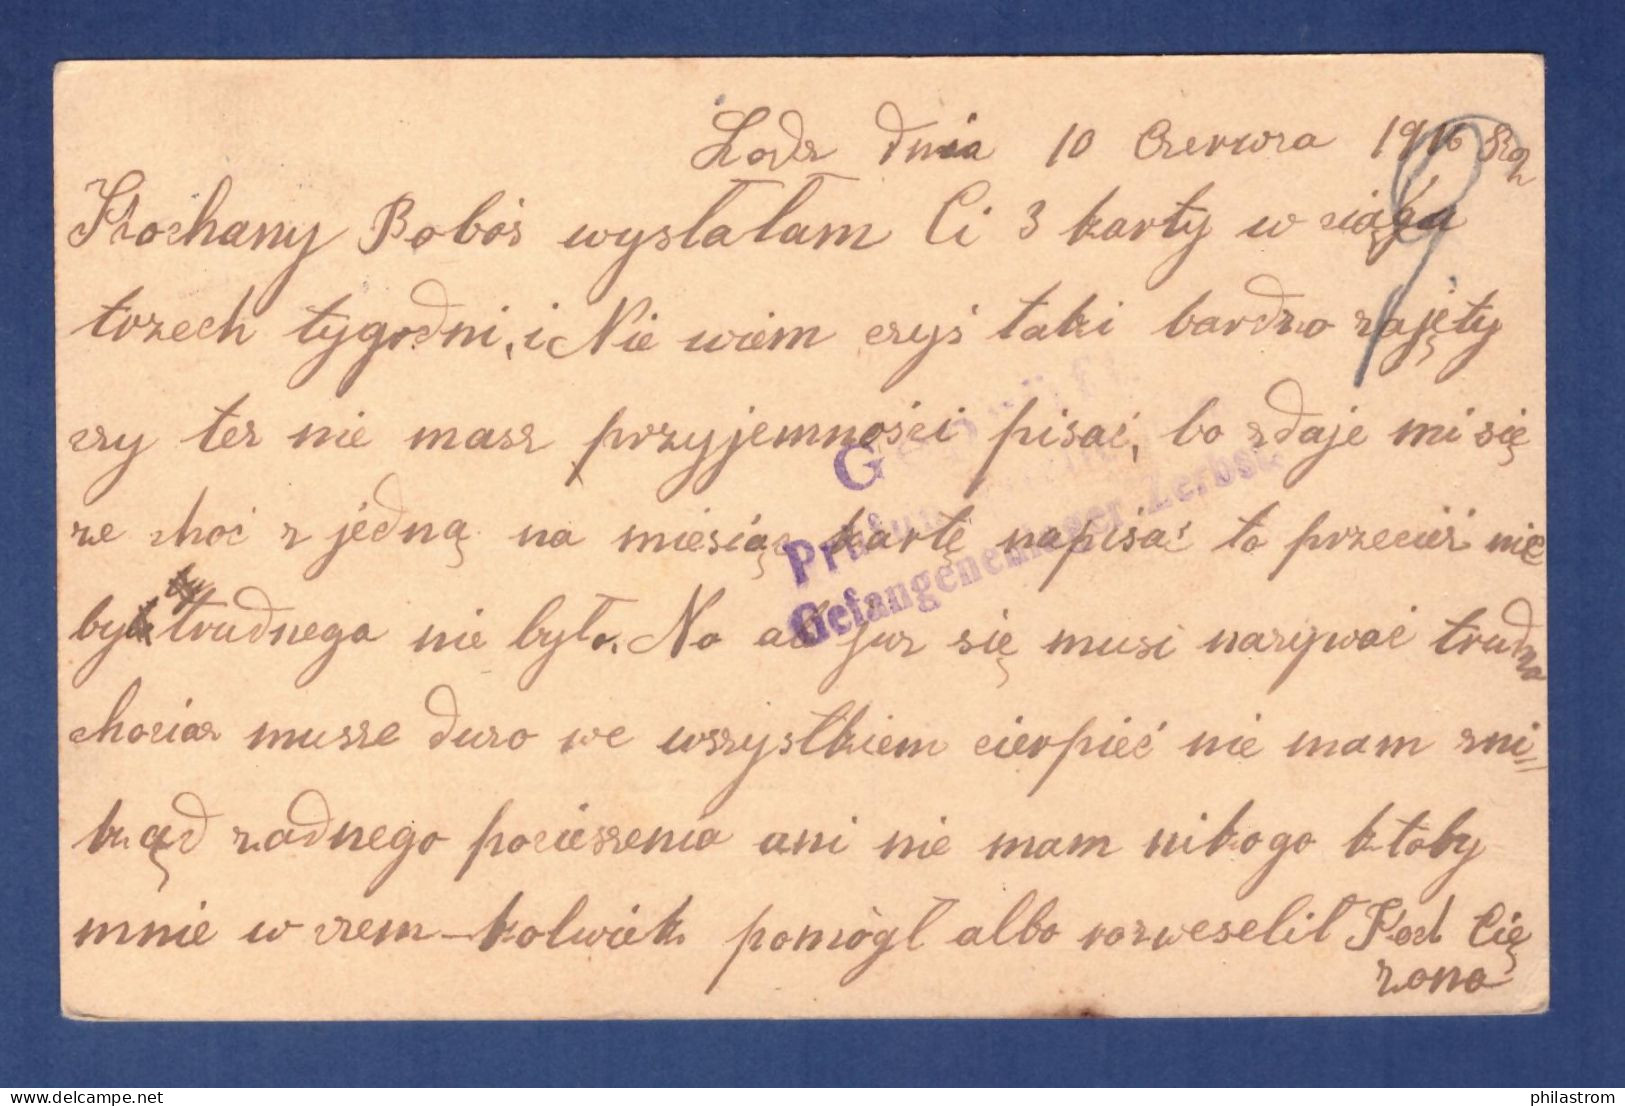 Lodz dnia 10 Czerwca 1916
Kochany Boboś wysłałam Ci 3 karty w ciągu
trzech tygodni, i Nie wiem czyś taki bardzo zajęty
czy tez nie masz przyjemności pisać, bo zdaje mi się
ze choć z jedną na miesiąc kartę napisać to przecież nic
trudnego nie było. No a juz się musi nazywać trudno
chociaz musze duzo we wszystkiem cierpieć nie mam zni=
kąd zadnego pocieszenia ani nie mam nikogo ktoby
mnie w czem-kolwiek pomógł albo rozweselił Koch Cię
zona
Geprüft
Prüfungs
Gefangenenlager Zerbst.
9
delcampe.net
philastrom